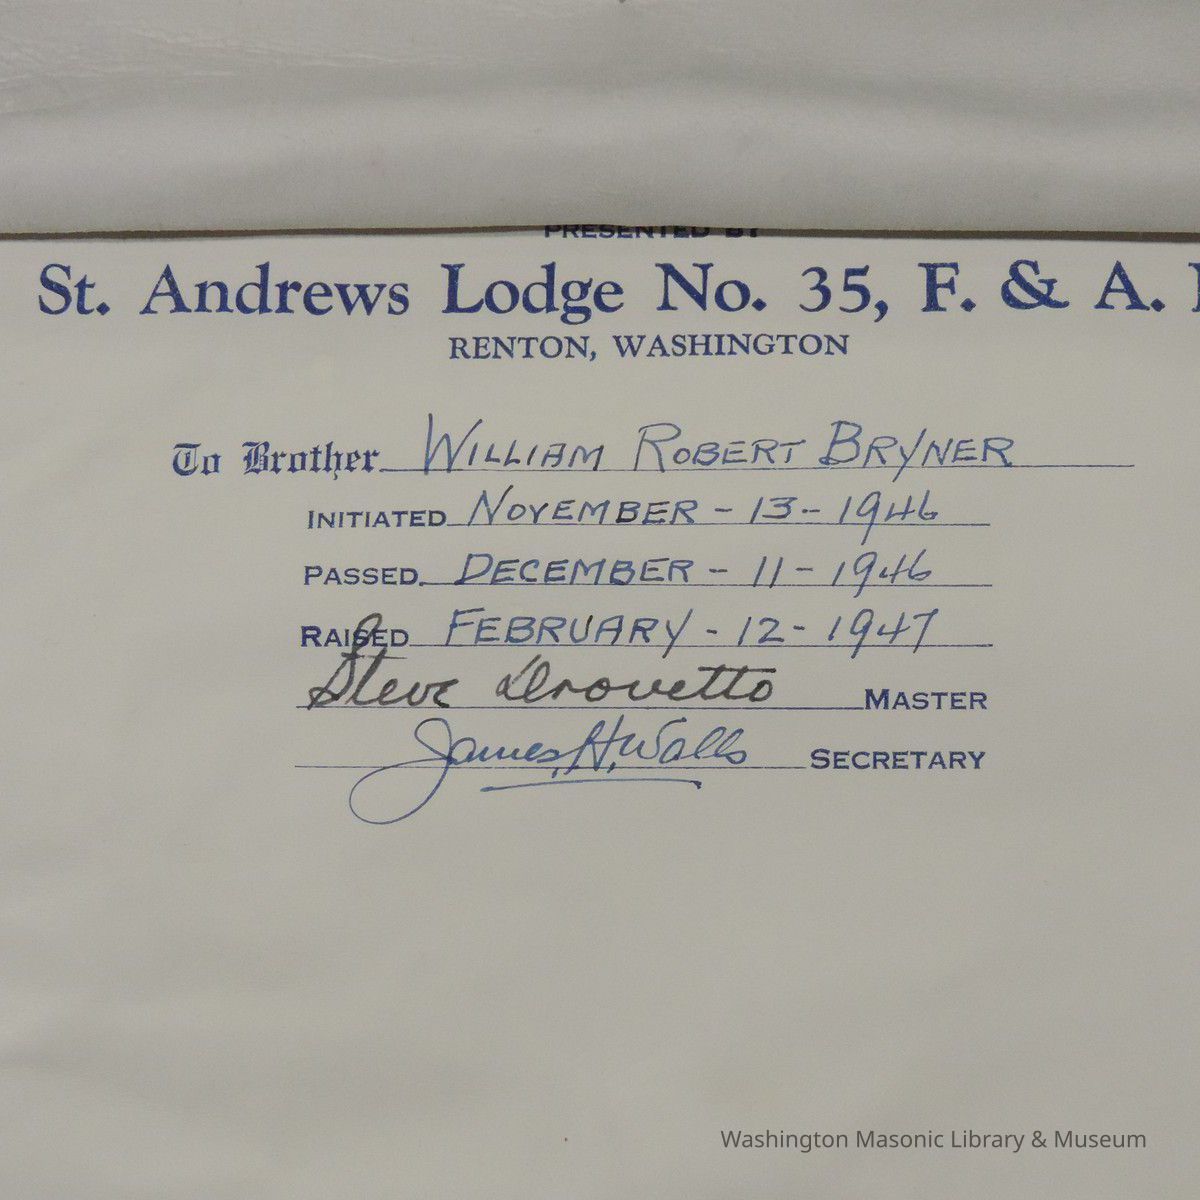 PRESENTED BY
St. Andrews Lodge No. 35, F. & A.
RENTON, WASHINGTON
To Brother WILLIAM ROBERT BRYNER
INITIATED NOVEMBER - 13 - 1946
PASSED. DECEMBER - 11 - 1946
RAISED FEBRUARY - 12 - 1947
Steve Drovetto MASTER
James, H, Walls SECRETARY
Washington Masonic Library & Museum